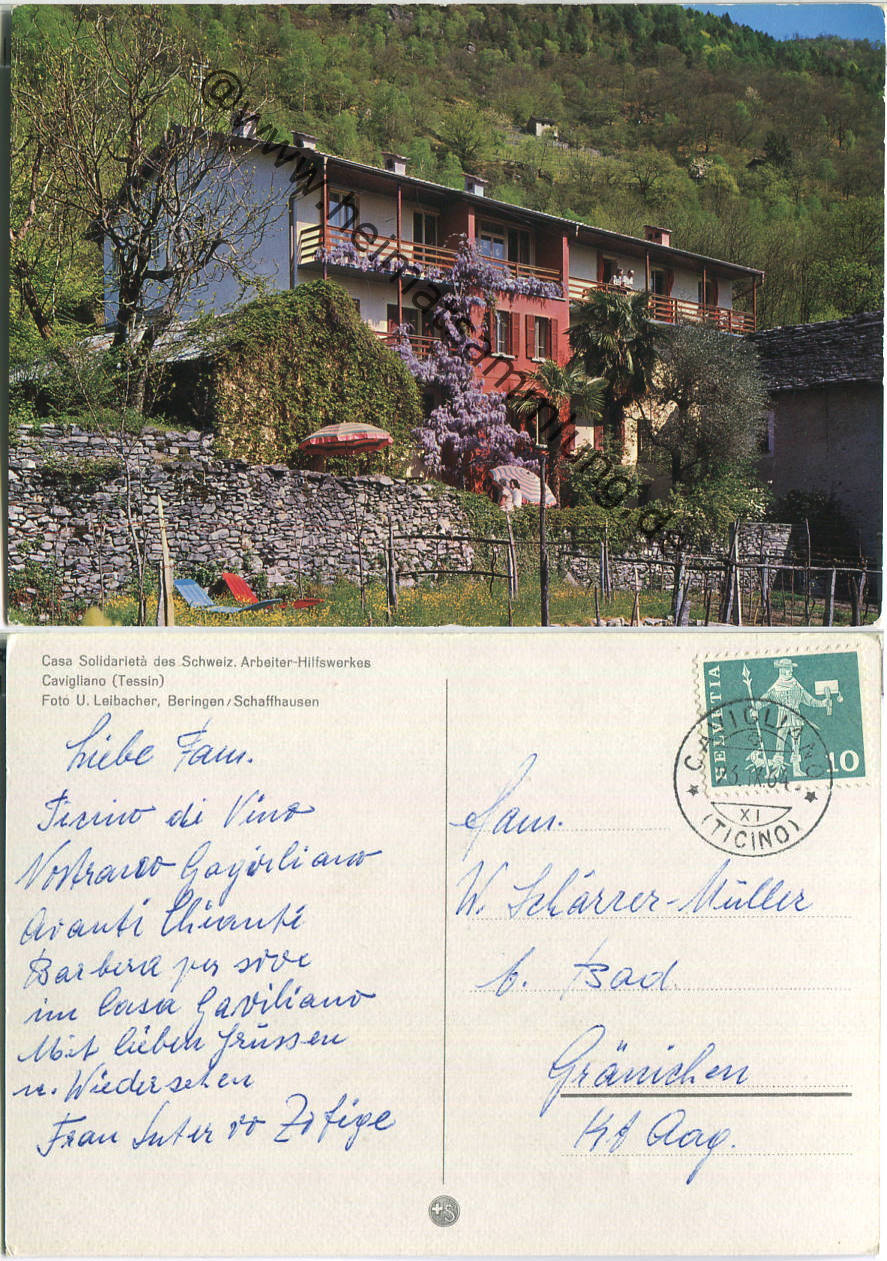 @ www.heimatsammlung.de
Casa Solidarietà des Schweiz. Arbeiter-Hilfswerkes
Cavigliano (Tessin)
Foto U. Leibacher, Beringen/Schaffhausen
HELVETIA
10
CAVIGLIANO
XI
(TICINO)
Liebe Fam.
Ticino di Vino
Nostrano Gagirliano
Avanti Chianti
Barbera per sove
im Casa Gaviliano
Mit lieben Grüssen
u. Wiedersehen
Frau Suter vo Zofige
Fam.
W. Schärrer-Müller
b. Bad
Gränichen
Kt Aag.
+S